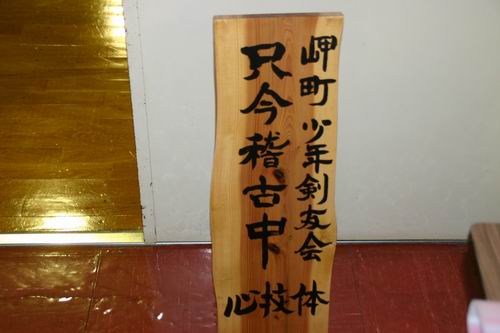 岬町少年剣友会
只今稽古中
心技体